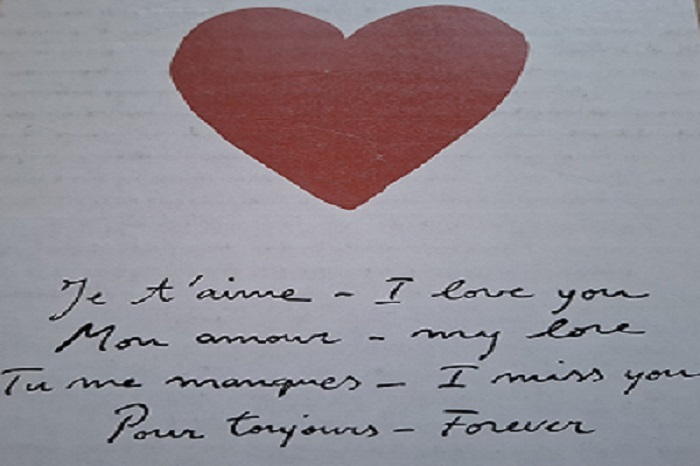 Je t'aime - I love you
Mon amour - my love
Tu me manques - I miss you
Pour toujours - Forever